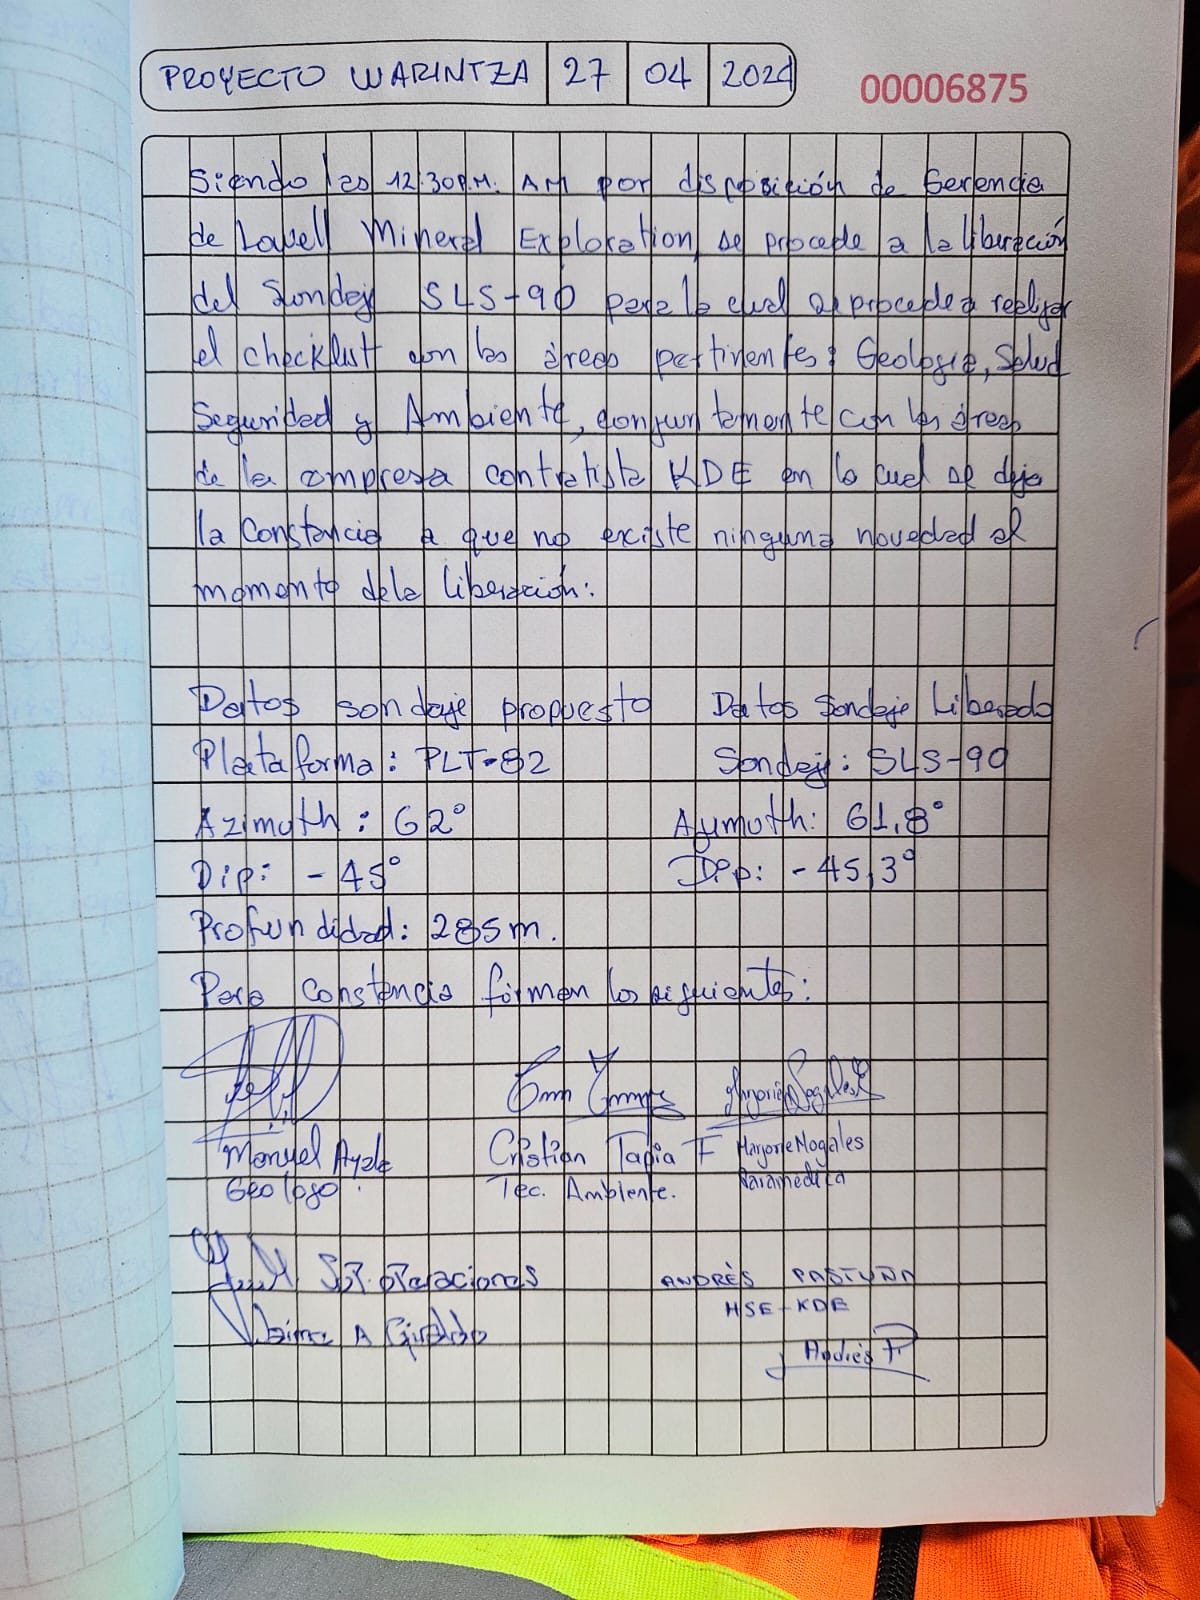 PROYECTO WARINTZA 27 04 2024
00006875
Siendo las 12:30P.M. AM por disposición de Gerencia
de Lowell Mineral Exploration, se procede a la liberación
del Sondaje SLS-90 para lo cual se procede a realizar
el checklist con las áreas pertinentes: Geología, Salud
Seguridad y Ambiente, conjuntamente con las áreas
de la empresa contratista KDE en lo cual se deja
la Constancia a que no existe ninguna novedad al
momento de la liberación:
Datos sondaje propuesto Datos Sondaje Liberado
Plataforma: PLT-82 Sondaje: SLS-90
Azimuth: 62° Azimuth: 61,8°
Dip: -45° Dip: -45,3°
Profundidad: 285m.
Para constancia firman los siguientes:
Manuel Ayala Cristian Tapia F Marjorie Nogales
Geólogo. Tec. Ambiente. Paramedica
SPT. OPeraciones ANDRÈS PASTUÑA
HSE-KDE
Jaime A Giraldo
Andrés P